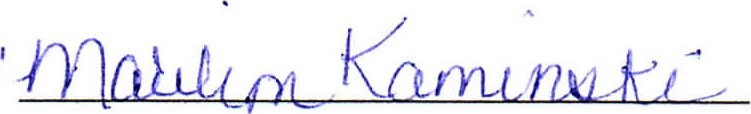 Marilyn Kaminski